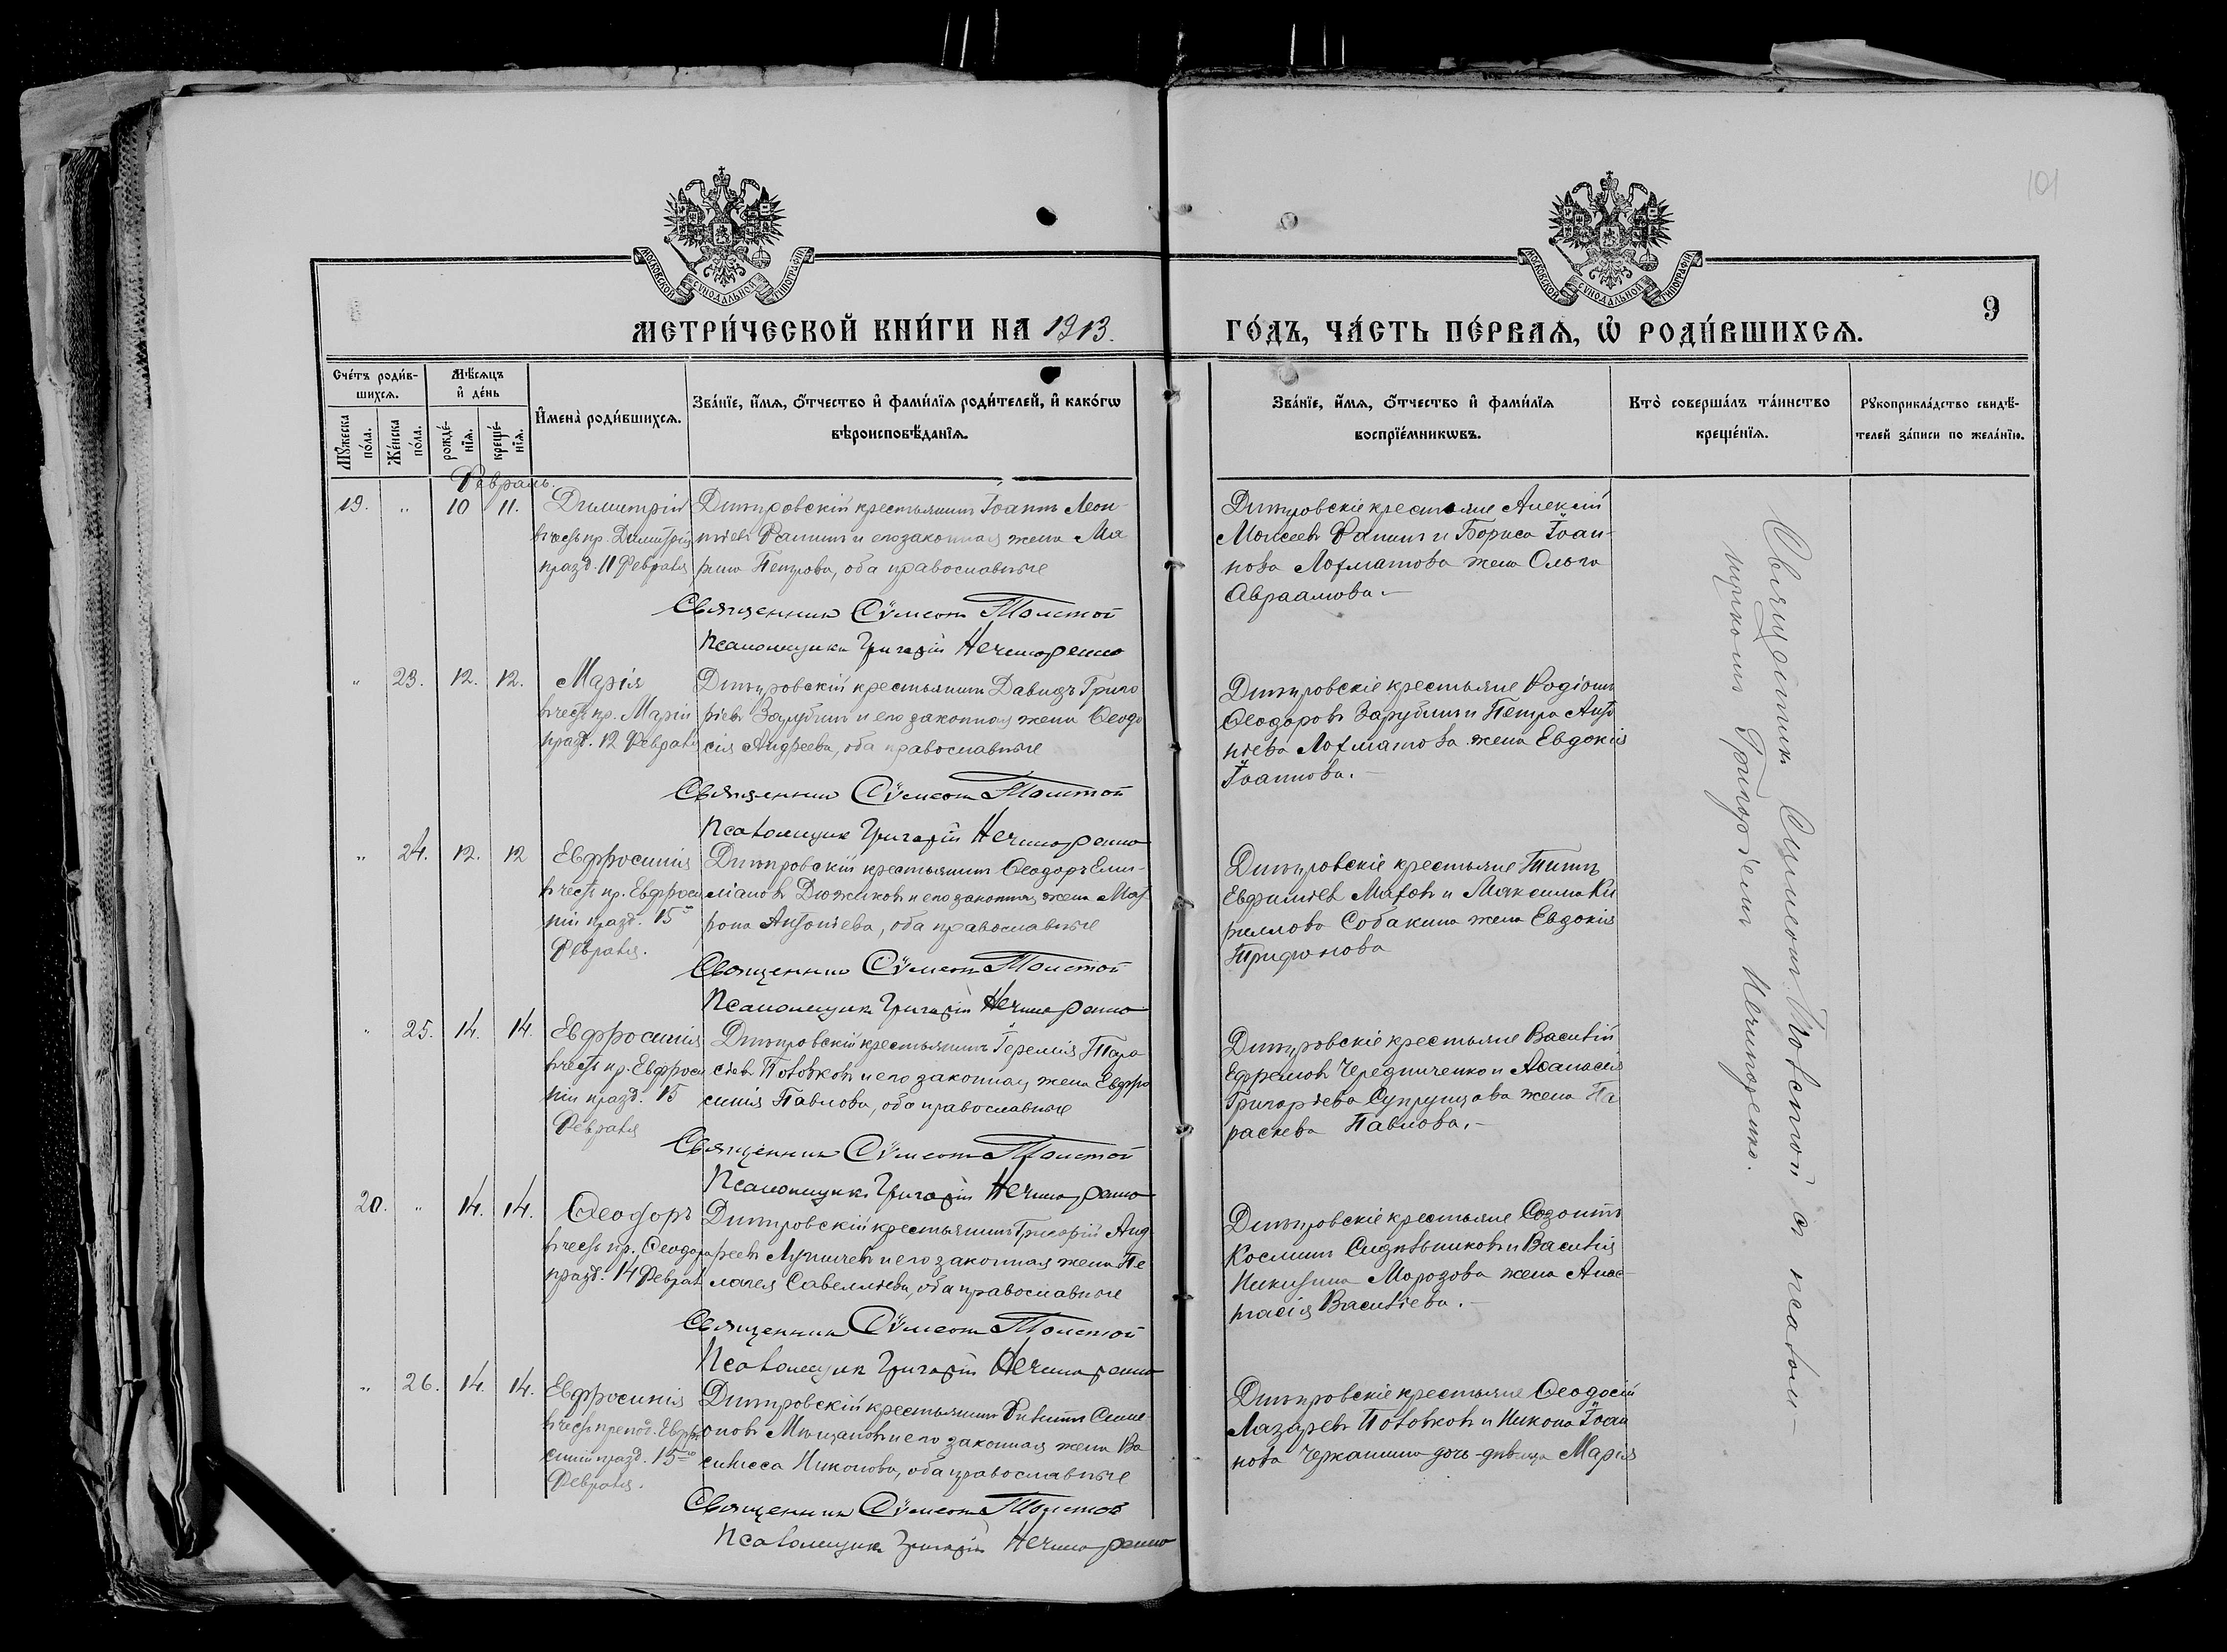 101
МОСКОВСКОЙ СѴНОДАЛЬНОЙ ТИПОГРАФІИ
МОСКОВСКОЙ СѴНОДАЛЬНОЙ ТИПОГРАФІИ
9
МЕТРИ́ЧЕСКОЙ КНИ́ГИ НА 1913.
ГО́ДЪ, ЧА́СТЬ ПЕ́РВАѦ, Ѡ҆ РОДИ́ВШИХСѦ.
Сче́тъ роди́в-
шихсѧ.
Мꙋ́жеска по́ла.
Же́нска по́ла.
Мѣ́сѧцъ
и҆ де́нь
рожде́-
нїѧ.
креще́-
нїѧ.
И҆мена̀ роди́вшихсѧ.
Зва́нїе, и҆́мѧ, ѻ҆́тчество и҆ фами́лїѧ роди́телей, и҆ како́гѡ
вѣроисповѣ́данїѧ.
Зва́нїе, и҆́мѧ, ѻ҆́тчество и҆ фами́лїѧ
воспрїе́мникѡвъ.
Кто̀ соверша́лъ та́инство
креще́нїѧ.
Рꙋкоприкла́дство свидѣ́-
телей за́писи по жела́нїю.
Февраль.
19. " 10 11. Димитрій
въ честь пр. Димитрія
празд. 11 Февраля
Дмитровскій крестьянинъ Іоаннъ Леон-
тіевъ Фанинъ и его законная жена Ма
рина Петрова, оба православные
Священникъ Сѵмеонъ Толстой
Псаломщикъ Григорій Нечипоренко
Дмитровскіе крестьяне Алексій
Моисеевъ Фанинъ и Бориса Іоан-
нова Лохматова жена Ольга
Авраамова.-
" 23. 12. 12. Марія
въ честь пр. Маріи
празд. 12 Февраля
Дмитровскій крестьянинъ Давидъ Григо
ріевъ Зарубинъ и его законная жена Ѳеодо
сія Андреева, оба православные
Священникъ Сѵмеонъ Толстой
Псаломщикъ Григорій Нечипоренко
Дмитровскіе крестьяне Родіонъ
Ѳеодоровъ Зарубинъ и Петра Анто
ніева Лохматова жена Евдокія
Іоаннова.-
" 24. 12. 12 Евфросинія
въ честь пр. Евфроси
ніи празд. 15го
Февраля.
Дмитровскій крестьянинъ Ѳеодоръ Еми-
ліановъ Дюжиковъ и его законная жена Мат
рона Антоніева, оба православные
Священникъ Сѵмеонъ Толстой
Псаломщикъ Григорій Нечипоренко
Дмитровскіе крестьяне Титъ
Евфиміевъ и Максима Ки
риллова Собакина жена Евдокія
Трифонова
" 25. 14. 14. Евфросинія
въ честь пр. Евфроси
ніи празд. 15
Февраля
Дмитровскій крестьянинъ Іеремія Тара
сіевъ Половковъ и его законная жена Евфро
синія Павлова, оба православные
Священникъ Сѵмеонъ Толстой
Псаломщикъ Григорій Нечипоренко
Дмитровскіе крестьяне Василій
Ефремовъ Чередниченко и Аѳанасія
Григоріева Супрунцова жена Па
раскева Павлова.-
20. " 14. 14. Ѳеодоръ
въ честь пр. Ѳеодора
празд. 14 Феврал
Дмитровскій крестьянинъ Григорій Анд
реевъ Лупичевъ и его законная жена Пе
лагея Савеліева, оба православные
Священникъ Сѵмеонъ Толстой
Псаломщикъ Григорій Нечипоренко
Дмитровскіе крестьяне Созонтъ
Косминъ Сидѣльниковъ и Василія
Никитина Морозова жена Анас-
тасія Василіева.-
" 26. 14. 14. Евфросинія
въ честь препод. Евфро
синіи празд. 15го
Февраля.
Дмитровскій крестьянинъ Филиппъ Симе-
оновъ Мищановъ и его законная жена Ва
силисса Никонова, оба православные
Священникъ Сѵмеонъ Толстой
Псаломщикъ Григорій Нечипоренко
Дмитровскіе крестьяне Ѳеодосій
Лазаревъ Половковъ и Никона Іоан
нова Черкашина дочь-дѣвица Марія
Священникъ Симеонъ Толстой съ псалом-
щикомъ Григоріемъ Нечипоренко.